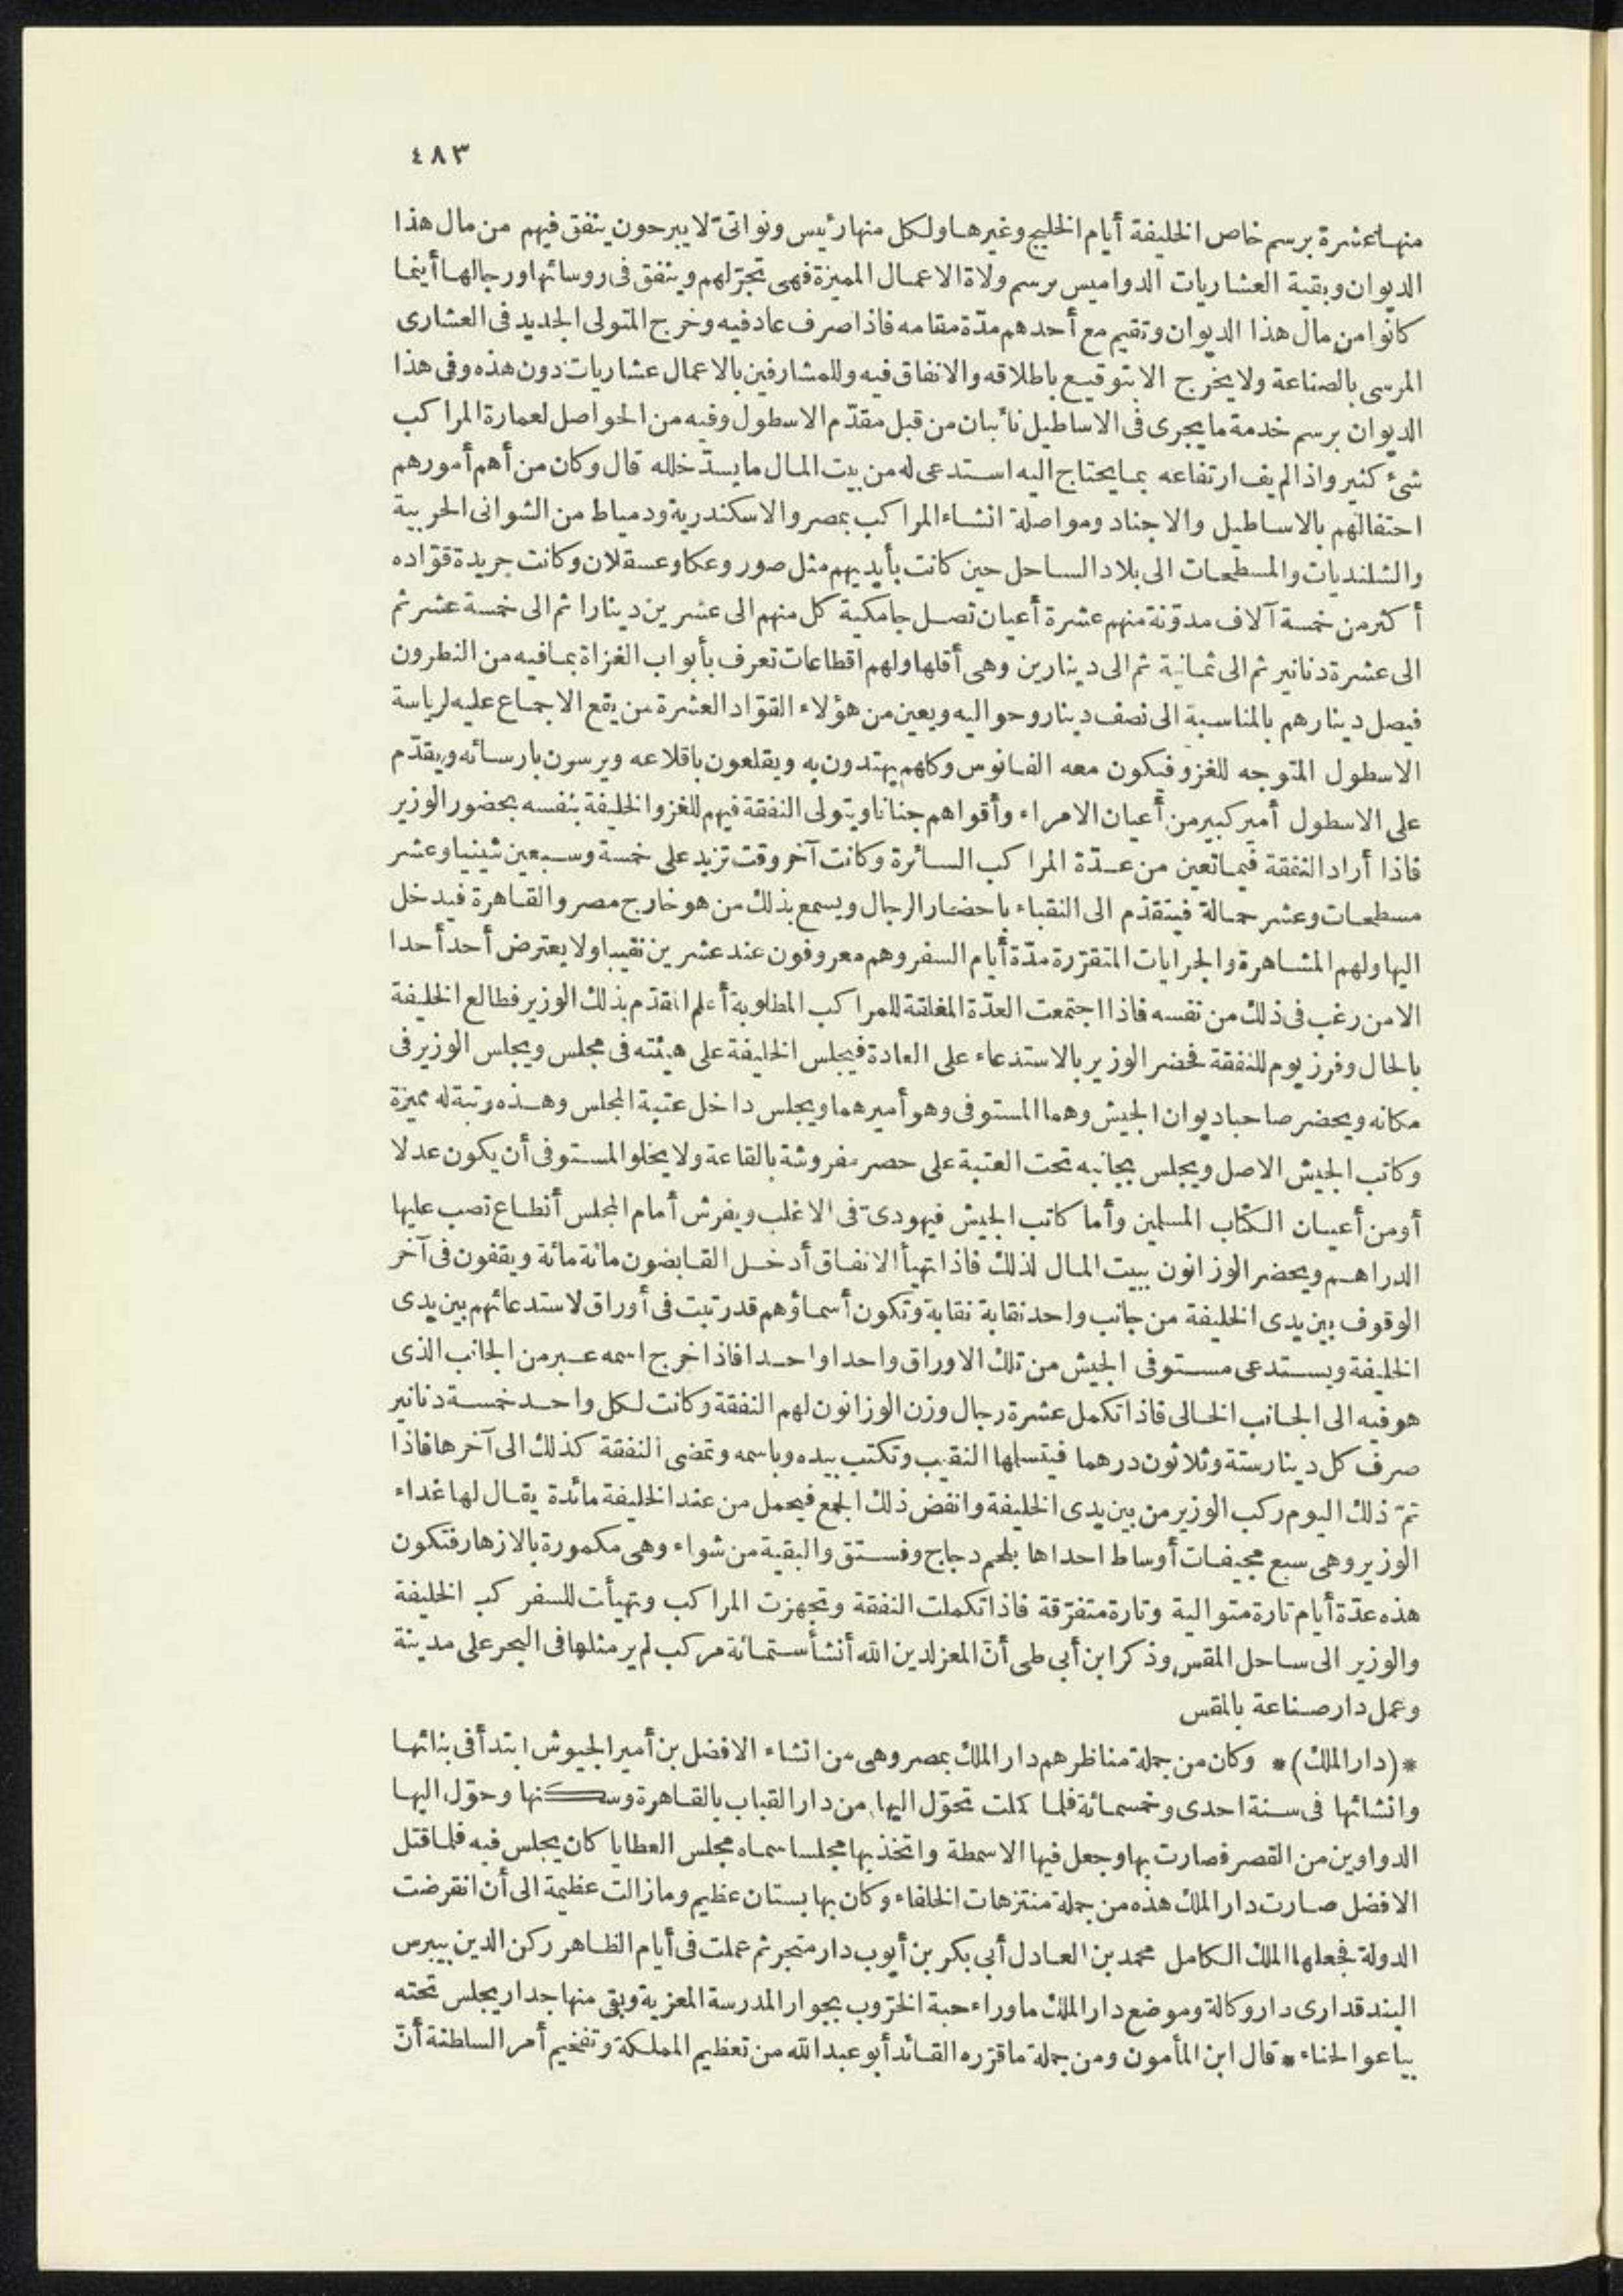 ٤٨٣
منها عشرة برسم خاص الخليفة أيام الخليج وغيرها ولكل منها رئيس ونواتىّ لا يبرحون ينفق فيهم من مال هذا
الديوان وبقية العشاريات الدواميس برسم ولاة الاعمال المميزة فهى تجرّ لهم وينفق فى روسائها ورجالها أينما
كانوا من مال هذا الديوان وتقيم مع أحدهم مدّة مقامه فاذا صرف عاد فيه وخرج المتولى الجديد فى العشارى
المرسى بالصناعة ولا يخرج الا بتوقيع باطلاقه والانفاق فيه وللمشارفين بالاعمال عشاريات دون هذه وفى هذا
الديوان برسم خدمة ما يجرى فى الاساطيل نائبان من قبل مقدّم الاسطول وفيه من الحواصل لعمارة المراكب
شئ كثير واذا لم يف ارتفاعه بما يحتاج اليه استدعى له من بيت المال ما يسدّ خلله قال وكان من أهم أمورهم
احتفالهم بالاساطيل والاجناد ومواصلة انشاء المراكب بمصر والاسكندرية ودمياط من الشوانى الحربية
والشلنديات والمسطحات الى بلاد الساحل حين كانت بأيديهم مثل صور وعكا وعسقلان وكانت جريدة قوّاده
أكثر من خمسة آلاف مدوّنة منهم عشرة أعيان تصل جامكية كل منهم الى عشرين دينارا ثم الى خمسة عشر ثم
الى عشرة دنانير ثم الى ثمانية ثم الى دينارين وهى أقلها ولهم اقطاعات تعرف بأبواب الغزاة بما فيه من النطرون
فيصل دينارهم بالمناسبة الى نصف دينار وحواليه ويعين من هؤلاء القوّاد العشرة من يقع الاجماع عليه لرياسة
الاسطول المتوجه للغزو فيكون معه الفانوس وكلهم يهتدون به ويقلعون باقلاعه ويرسون بارسائه ويقدّم
على الاسطول أمير كبير من أعيان الامراء وأقواهم جنانا ويتولى النفقة فيهم للغزو الخليفة بنفسه بحضور الوزير
فاذا أراد النفقة فيما تعين من عدّة المراكب السائرة وكانت آخر وقت تزيد على خمسة وسبعين شينيا وعشر
مسطحات وعشر حمالة فيتقدّم الى النقباء باحضار الرجال ويسمع بذلك من هو خارج مصر والقاهرة فيدخل
اليها ولهم المشاهرة والجرايات المتقرّرة مدّة أيام السفر وهم معروفون عند عشرين نقيبا ولا يعترض أحد أحدا
الا من رغب فى ذلك من نفسه فاذا اجتمعت العدّة المغلقة للمراكب المطلوبة أعلم المقدّم بذلك الوزير فطالع الخليفة
بالحال وفرز يوم للنفقة فحضر الوزير بالاستدعاء على العادة فيجلس الخليفة على هيئته فى مجلس ويجلس الوزير فى
مكانه ويحضر صاحبا ديوان الجيش وهما المستوفى وهو أميرهما ويجلس داخل عتبة المجلس وهذه رتبة له مميزة
وكاتب الجيش الاصل ويجلس بجانبه تحت العتبة على حصر مفروشة بالقاعة ولا يخلو المستوفى أن يكون عدلا
أو من أعيان الكتاب المسلمين وأما كاتب الجيش فيهودىّ فى الاغلب ويفرش أمام المجلس أنطاع تصب عليها
الدراهم ويحضر الوزانون ببيت المال لذلك فاذا تهيأ الانفاق أدخل القابضون مائة مائة ويقفون فى آخر
الوقوف بين يدى الخليفة من جانب واحد نقابة نقابة وتكون أسماؤهم قد رتبت فى أوراق لاستدعائهم بين يدى
الخليفة ويستدعى مستوفى الجيش من تلك الاوراق واحدا واحدا فاذا خرج اسمه عبر من الجانب الذى
هو فيه الى الجانب الخالى فاذا تكمل عشرة رجال وزن الوزانون لهم النفقة وكانت لكل واحد خمسة دنانير
صرف كل دينار ستة وثلاثون درهما فيتسلها النقيب وتكتب بيده وباسمه وتمضى النفقة كذلك الى آخرها فاذا
تمّ ذلك اليوم ركب الوزير من بين يدى الخليفة وانفض ذلك الجمع فيحمل من عند الخليفة مائدة يقال لها غداء
الوزير وهى سبع مجيفات أوساط احداها بلحم دجاج وفستق والبقية من شواء وهى مكمورة بالازهار فتكون
هذه عدّة أيام تارة متوالية وتارة متفرّقة فاذا تكملت النفقة وتجهزت المراكب وتهيأت للسفر كب الخليفة
والوزير الى ساحل المقس وذكر ابن أبى طى أنّ المعز لدين الله أنشأ ستمائة مركب لم ير مثلها فى البحر على مدينة
وعمل دار صناعة بالمقس
*(دار الملك)* وكان من جملة مناظرهم دار الملك بمصر وهى من انشاء الافضل بن أمير الجيوش ابتدأ فى بنائها
وانشائها فى سنة احدى وخمسمائة فلما كملت تحوّل اليها من دار القباب بالقاهرة وسكنها وحوّل اليها
الدواوين من القصر فصارت بها وجعل فيها الاسمطة واتخذ بها مجلسا سماه مجلس العطايا كان يجلس فيه فلما قتل
الافضل صارت دار الملك هذه من جملة منتزهات الخلفاء وكان بها بستان عظيم وما زالت عظيمة الى أن انقرضت
الدولة فجعلها الملك الكامل محمد بن العادل أبى بكر بن أيوب دار متجر ثم عملت فى أيام الظاهر ركن الدين بيبرس
البندقدارى دار وكالة وموضع دار الملك ما وراء حبة الخرّوب بجوار المدرسة المعزية وبقى منها جدار يجلس تحته
بياعو الحناء * قال ابن المأمون ومن جملة ما قرّره القائد أبو عبد الله من تعظيم المملكة وتفخيم أمر السلطنة أنّ